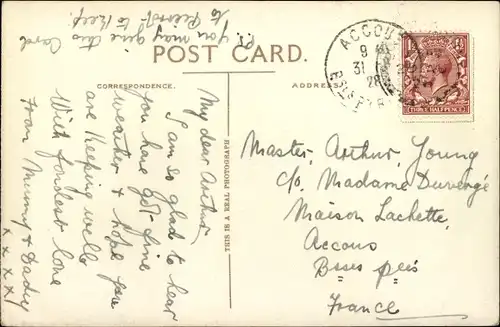 P.S. You may give this Card
to Record! to Keep.
POST CARD.
CORRESPONDENCE.
ADDRESS
THIS IS A REAL PHOTOGRAPH
My dear Arthur,
I am so glad to hear
you have got fine
weather & hope you
are keeping well
With fondest love
from Mummy & Dady
x x x x !
9
31
28
THREE HALFPENCE
Master, Arthur, Young
c/o Madame Duvergé
Maison Lachette,
Accous
Basses pées
France